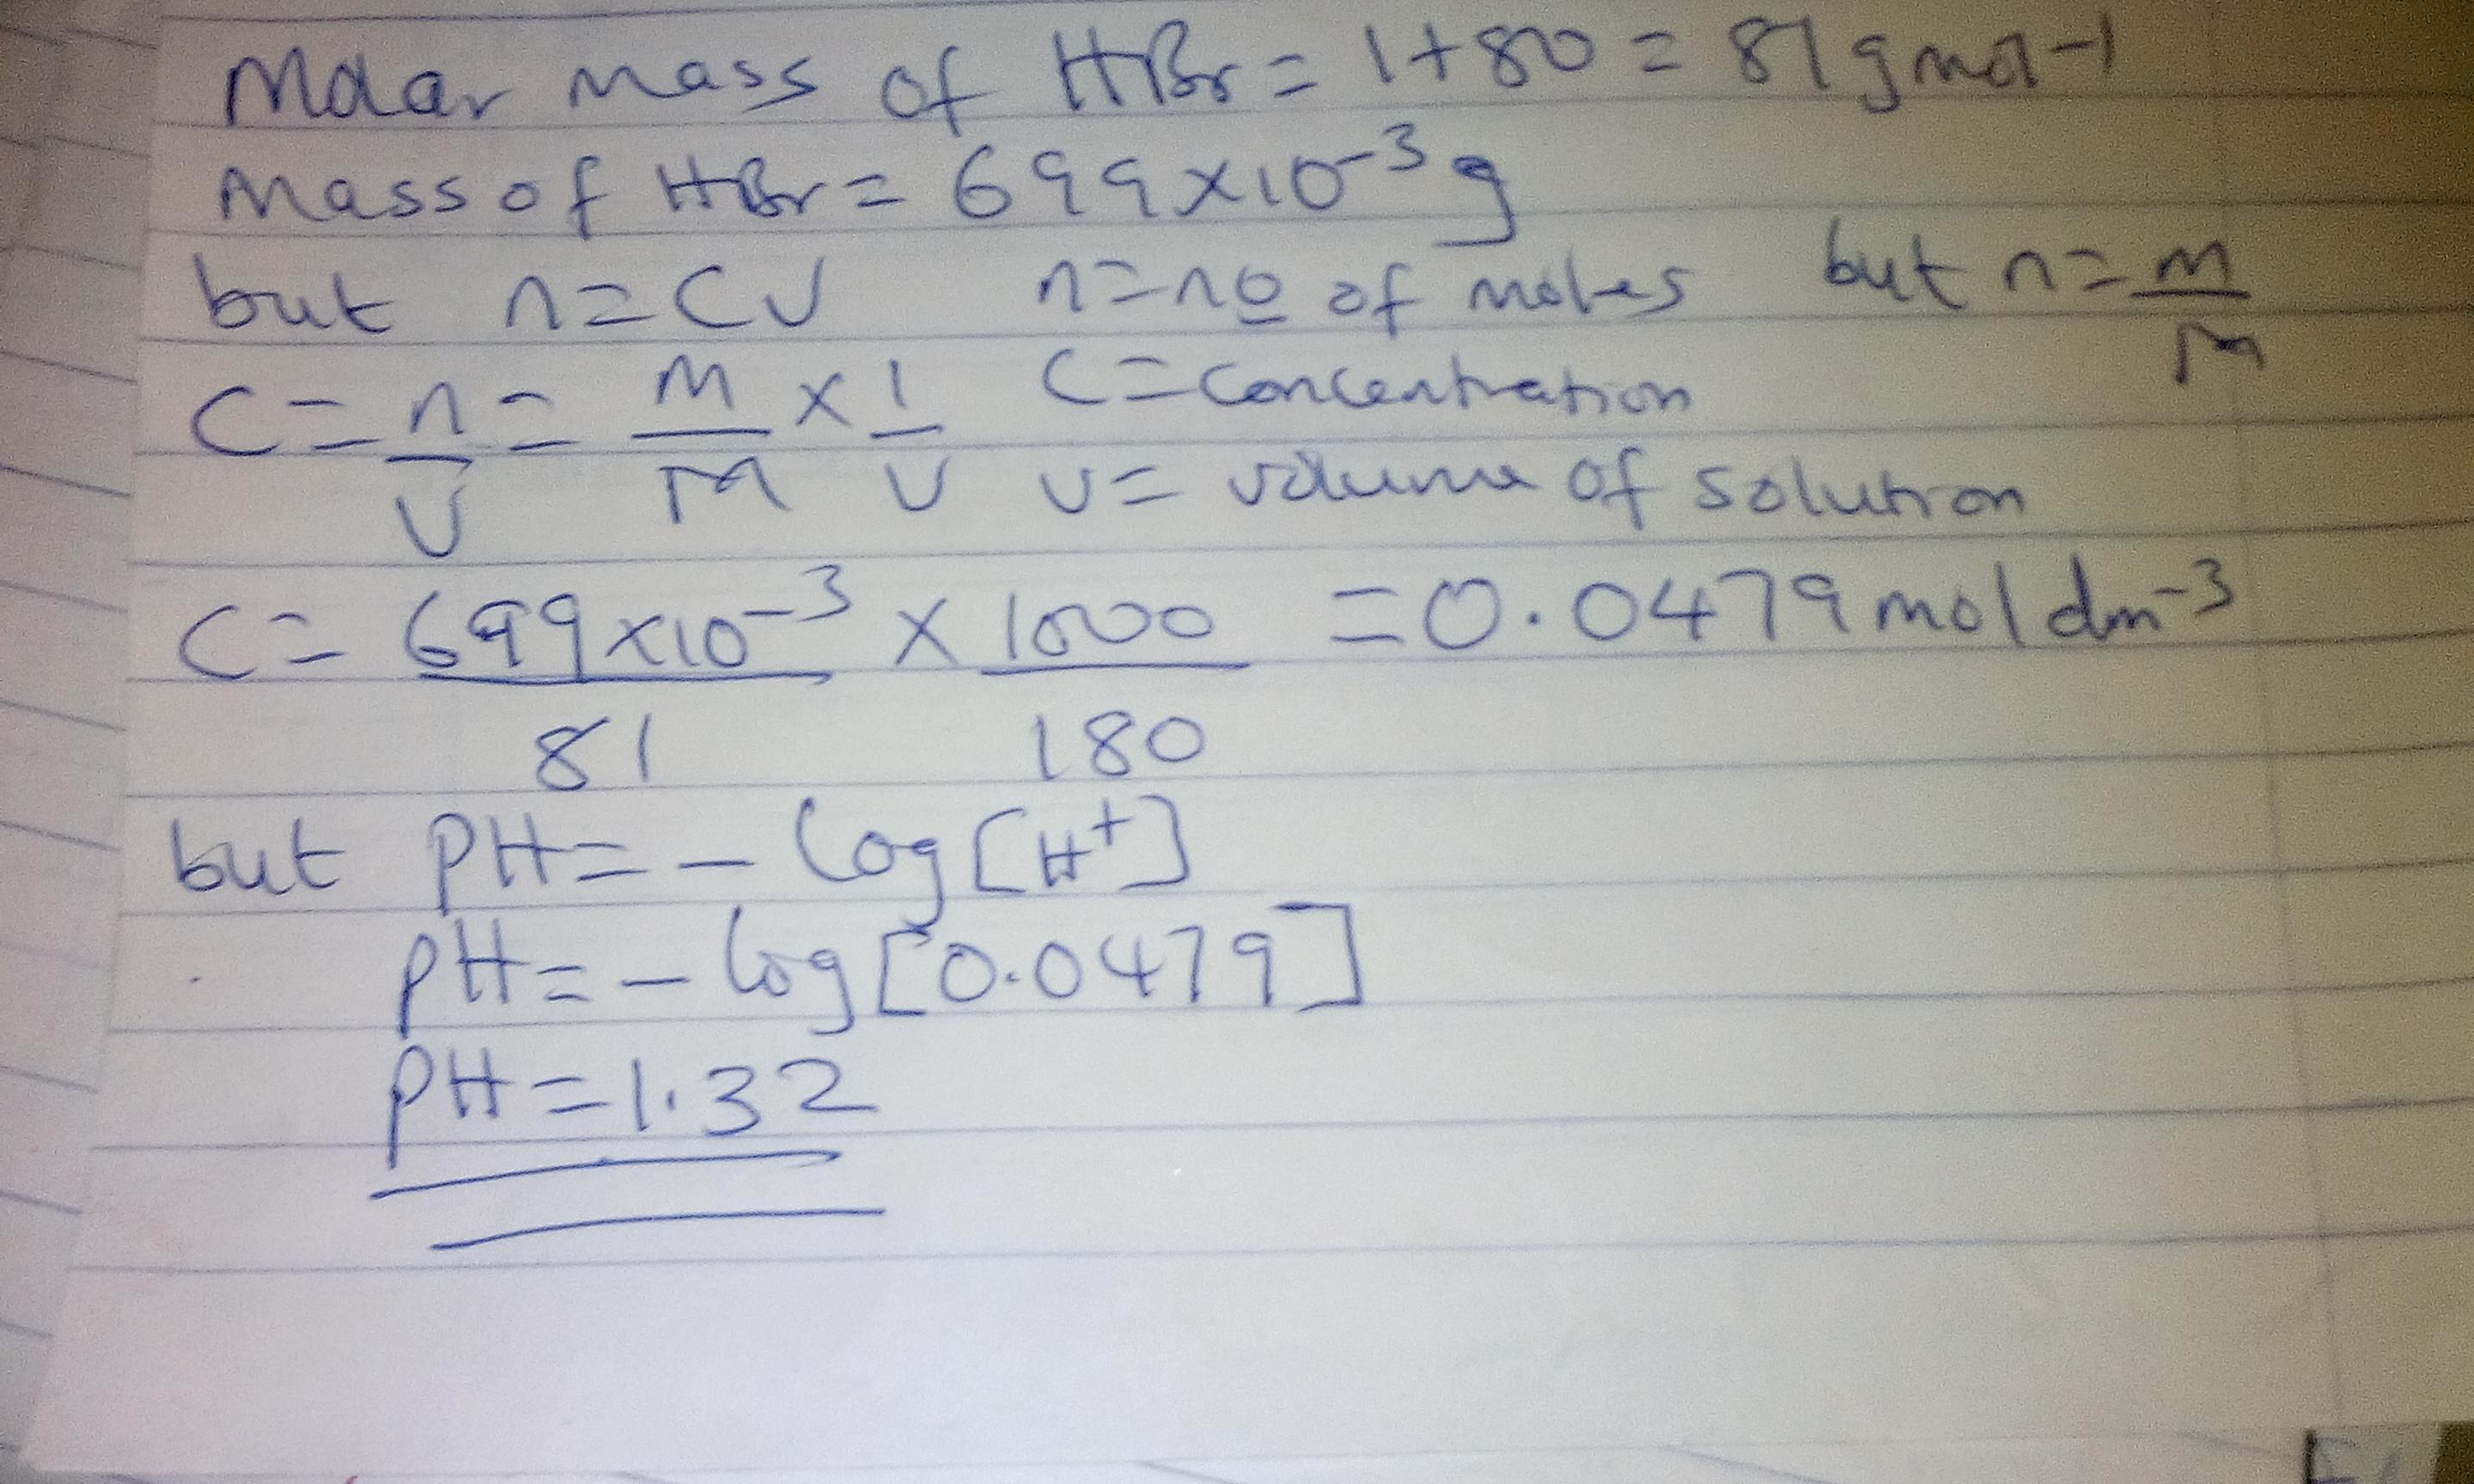 Molar mass of HBr = 1+80 = 81gmol-1
Mass of HBr = 699x10-3 g
but n=CV n=no of moles but n=m/M
C=n/V = m/M x 1/V C=concentration
V= volume of solution
C= 699x10-3/81 x 1000/180 =0.0479moldm-3
but PH=-log[H+]
PH=-log[0.0479]
PH=1.32